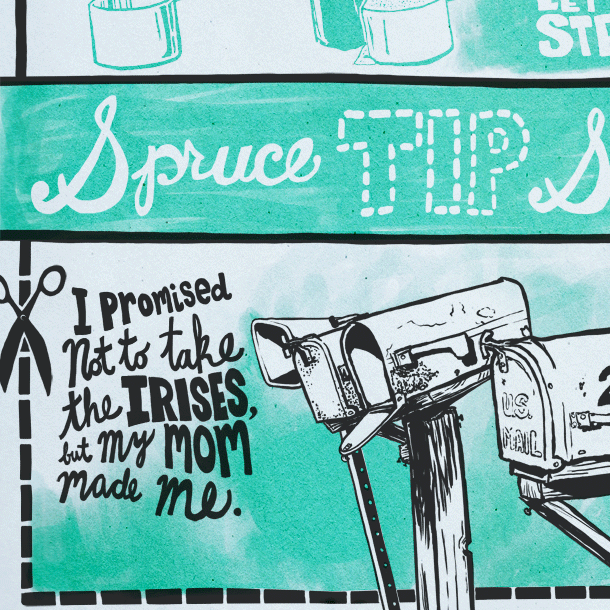 LET
Spruce TIP S
I Promised
Not to take
the IRISES,
but my MOM
made me.
2
U.S.
MAIL